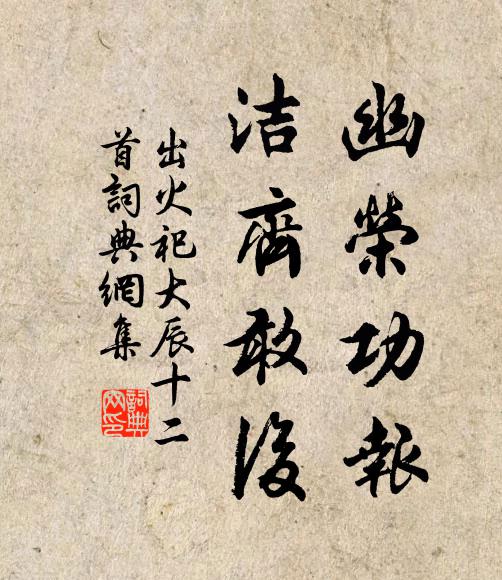 幽榮功報
洁齊敢後
出火祀大辰十二
首詞典網集
詞典网印